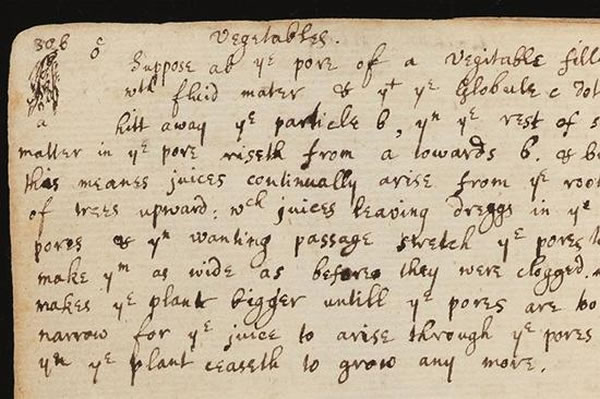 306 Vegetables.
c
Suppose ab yᵉ pore of a Vegitable fill
b
wᵗʰ fluid mater & yᵗ yᵉ Globule c dot
a hitt away yᵉ particle b, yⁿ yᵉ rest of s
matter in yᵉ pore riseth from a towards b. & b
this meanes juices continually arise from yᵉ roo
of trees upward: wᶜʰ juices leaving dreggs in yᵉ
pores & yⁿ wanting passage stretch yᵉ pores t
make yᵐ as wide as before they were clogged.
makes yᵉ plant bigger untill yᵉ pores are too
narrow for yᵉ juice to arise through yᵉ pores
yⁿ yᵉ plant ceaseth to grow any more.